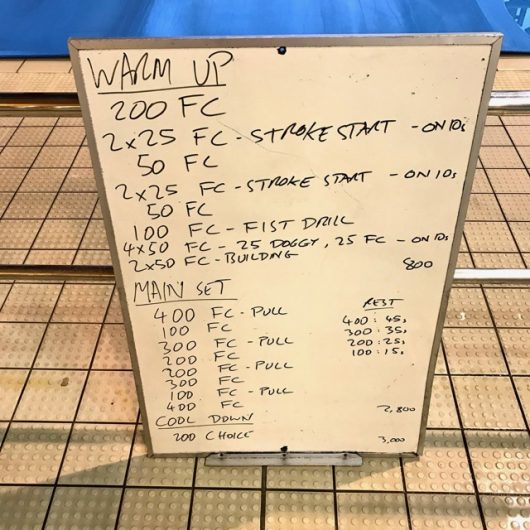 WARM UP
200 FC
2x25 FC - STROKE START - ON 10s
50 FC
2x25 FC - STROKE START - ON 10s
50 FC
100 FC - FIST DRILL
4x50 FC - 25 DOGGY, 25 FC - ON 10s
2x50 FC - BUILDING
800
MAIN SET
REST
400 FC - PULL
400 : 45s
100 FC
300 : 35s
300 FC - PULL
200 : 25s
200 FC
100 : 15s
200 FC - PULL
300 FC
100 FC - PULL
400 FC
2,800
COOL DOWN
200 CHOICE
3,000